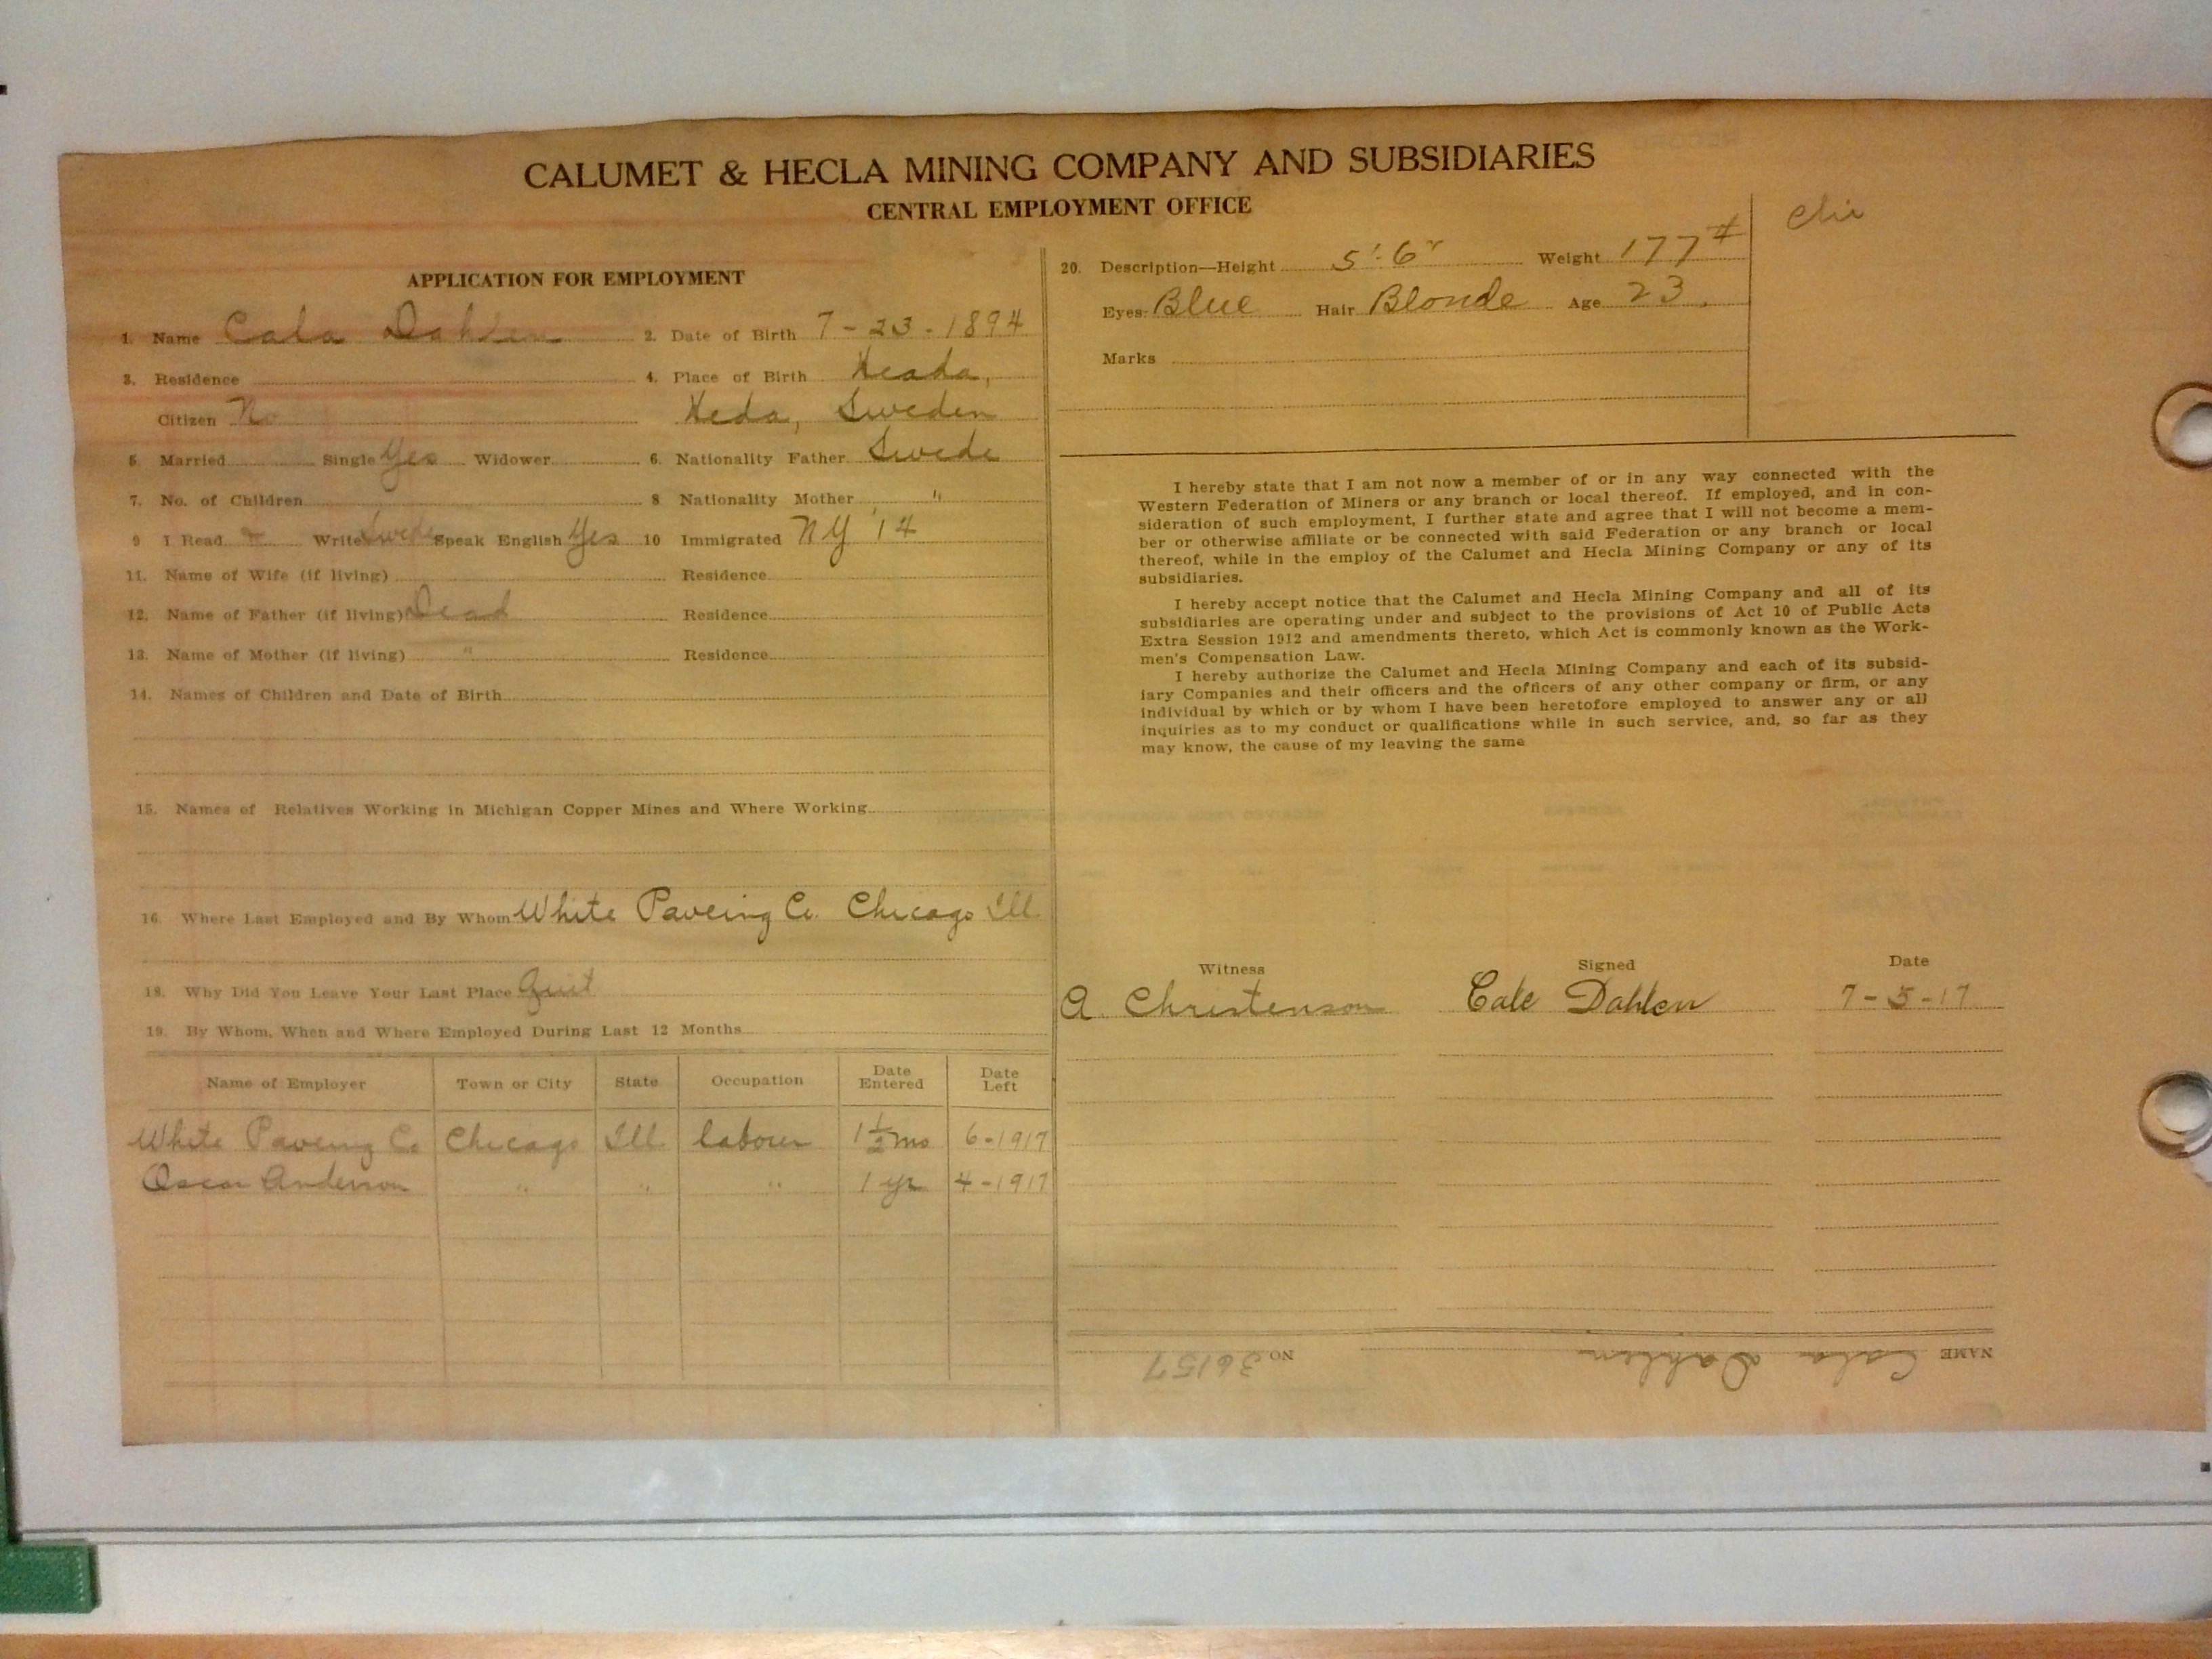 CALUMET & HECLA MINING COMPANY AND SUBSIDIARIES
CENTRAL EMPLOYMENT OFFICE
APPLICATION FOR EMPLOYMENT
1. Name Cala Dahlen 2. Date of Birth 7-23-1894
3. Residence 4. Place of Birth Heada,
Citizen No Heda, Sweden
5. Married Single Yes Widower 6. Nationality Father Swede
7. No. of Children 8 Nationality Mother "
9 I Read & Write Swede Speak English Yes 10 Immigrated NY '14
11. Name of Wife (if living) Residence
12. Name of Father (if living) Dead Residence
13. Name of Mother (if living) " Residence
14. Names of Children and Date of Birth
15. Names of Relatives Working in Michigan Copper Mines and Where Working
16. Where Last Employed and By Whom White Paveing Co. Chicago Ill
18. Why Did You Leave Your Last Place Quit
19. By Whom, When and Where Employed During Last 12 Months
Name of Employer Town or City State Occupation Date Entered Date Left
White Paveing Co Chicago Ill laborer 1½ mo 6-1917
Oscar Anderson " " " 1 yr 4-1917
20. Description—Height 5'-6" Weight 177#
Eyes Blue Hair Blonde Age 23.
Marks
I hereby state that I am not now a member of or in any way connected with the
Western Federation of Miners or any branch or local thereof. If employed, and in con-
sideration of such employment, I further state and agree that I will not become a mem-
ber or otherwise affiliate or be connected with said Federation or any branch or local
thereof, while in the employ of the Calumet and Hecla Mining Company or any of its
subsidiaries.
I hereby accept notice that the Calumet and Hecla Mining Company and all of its
subsidiaries are operating under and subject to the provisions of Act 10 of Public Acts
Extra Session 1912 and amendments thereto, which Act is commonly known as the Work-
men's Compensation Law.
I hereby authorize the Calumet and Hecla Mining Company and each of its subsid-
iary Companies and their officers and the officers of any other company or firm, or any
individual by which or by whom I have been heretofore employed to answer any or all
inquiries as to my conduct or qualifications while in such service, and, so far as they
may know, the cause of my leaving the same
Witness Signed Date
A. Christenson Cale Dahlen 7-5-17
NAME Cala Dahlen NO 36157